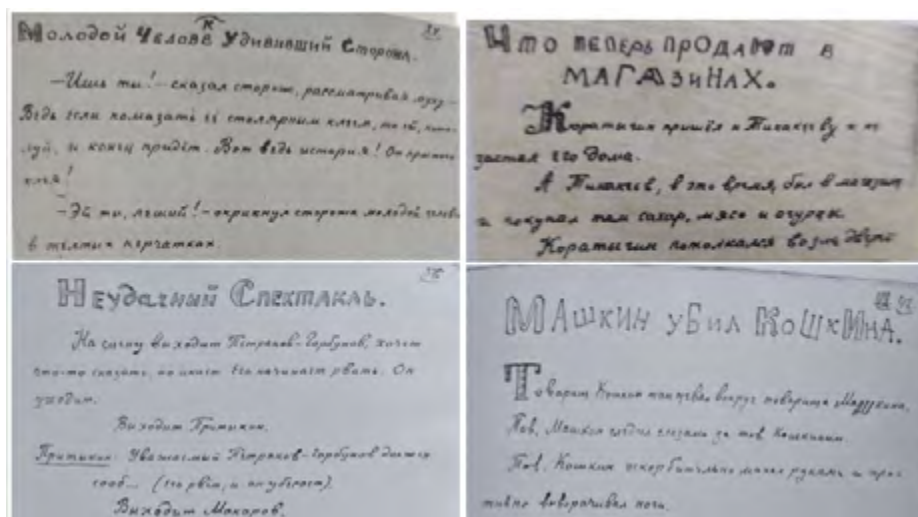 Молодой Человек Удививший Сторожа.
—Ишь ты!—сказал сторож, рассматривая муху—
Ведь если помазать её столярным клеем, то ей, пожа-
луй, и конец придёт. Вот ведь история! От простого
клея!
—Эй ты, леший!—окрикнул сторож молодого челове-
в жёлтых перчатках.
Что теперь продают в
магазинах.
Коратыгин пришёл к Тикакееву и не
застал его дома.
А Тикакеев, в это время, был в магазине
и покупал там сахар, мясо и огурцы.
Коратыгин потолкался возле дверей
Неудачный Спектакль.
На сцену выходит Петраков-Горбунов, хочет
что-то сказать, но икает. Его начинает рвать. Он
уходит.
Выходит Притыкин.
Притыкин: Уважаемый Петраков-Горбунов должен
сооб... (его рвёт, и он убегает).
Выходит Макаров.
Машкин убил Кошкина.
Товарищ Кошкин танцевал вокруг товарища Машкина.
Тов. Машкин следил глазами за тов. Кошкиным.
Тов. Кошкин оскорбительно махал руками и про-
тивно выворачивал ноги.